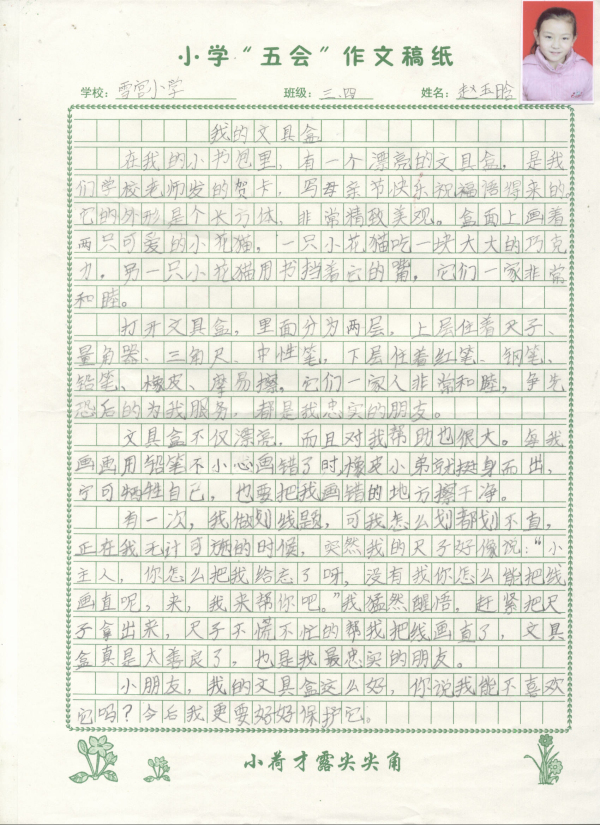 小学“五会”作文稿纸
学校：雪宫小学 班级：三.四 姓名：赵玉晗
我的文具盒
在我的小书包里，有一个漂亮的文具盒，是我
们学校老师发的贺卡，写母亲节快乐祝福语得来的
它的外形是个长方体，非常精致美观。盒面上画着
两只可爱的小花猫，一只小花猫吃一块大大的巧克
力，另一只小花猫用书挡着它的嘴，它们一家非常
和睦。
打开文具盒，里面分为两层，上层住着尺子、
量角器、三角尺、中性笔，下层住着红笔、钢笔、
铅笔、橡皮、摩易擦，它们一家人非常和睦，争先
恐后的为我服务，都是我忠实的朋友。
文具盒不仅漂亮，而且对我帮助也很大。每我
画画用铅笔不小心画错了时，橡皮小弟就挺身而出，
宁可牺牲自己，也要把我画错的地方擦干净。
有一次，我做划线题，可我怎么划都划不直，
正在我无计可施的时候，突然我的尺子好像说：“小
主人，你怎么把我给忘了呀，没有我你怎么能把线
画直呢，来，我来帮你吧。”我猛然醒悟，赶紧把尺
子拿出来，尺子不慌不忙的帮我把线画直了，文具
盒真是太善良了，也是我最忠实的朋友。
小朋友，我的文具盒这么好，你说我能不喜欢
它吗？今后我更要好好保护它。
小荷才露尖尖角